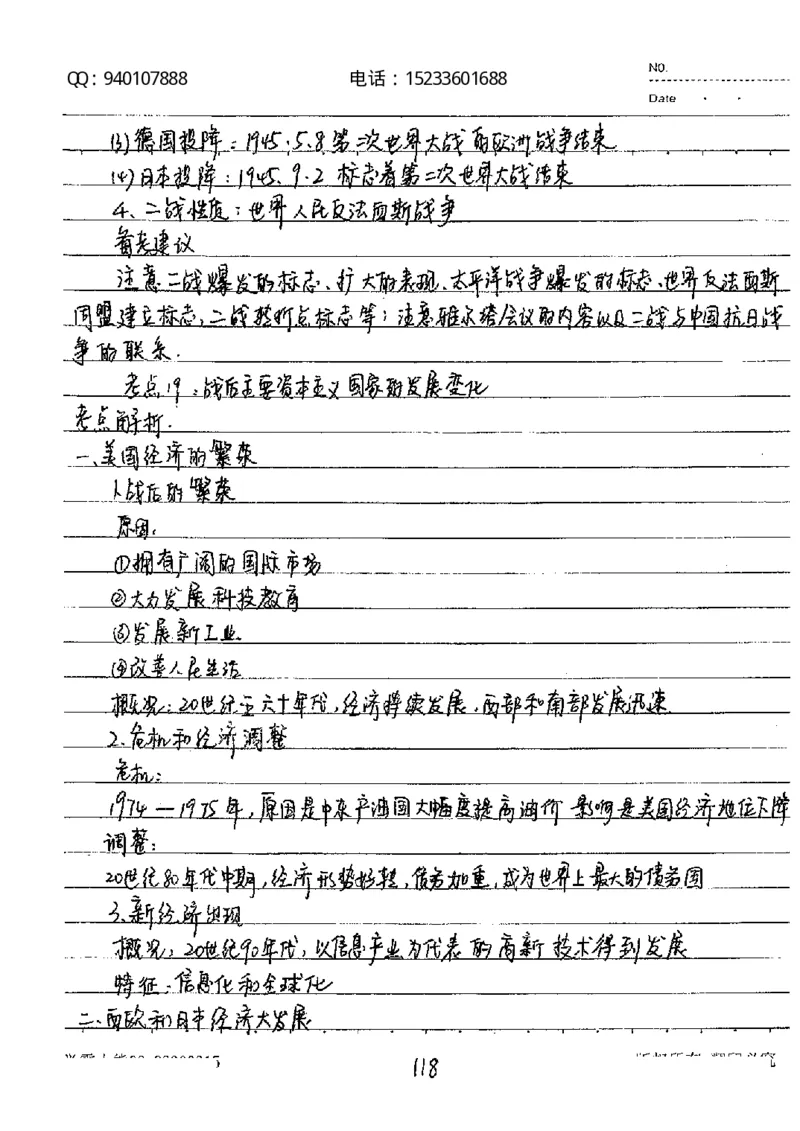 QQ：940107888 电话：15233601688 NO.
Date
(3)德国投降：1945.5.8第二次世界大战的欧洲战争结束
(4)日本投降：1945.9.2 标志着第二次世界大战结束
4、二战性质：世界人民反法西斯战争
备考建议
注意二战爆发的标志、扩大的表现、太平洋战争爆发的标志、世界反法西斯
同盟建立标志，二战转折点标志等；注意雅尔塔会议的内容以及二战与中国抗日战
争的联系.
考点19：战后主要资本主义国家的发展变化
考点解析.
一、美国经济的繁荣
1、战后的繁荣
原因：
①拥有广阔的国际市场
②大力发展科技教育
③发展新工业
④改善人民生活
概况：20世纪五六十年代，经济持续发展，西部和南部发展迅速
2.危机和经济调整
危机：
1974—1975年，原因是中东产油国大幅度提高油价 影响是美国经济地位下降
调整：
20世纪80年代中期，经济形势好转，债务加重，成为世界上最大的债务国
3.新经济出现
概况：20世纪90年代，以信息产业为代表的高新技术得到发展
特征：信息化和全球化
二、西欧和日本经济大发展
118